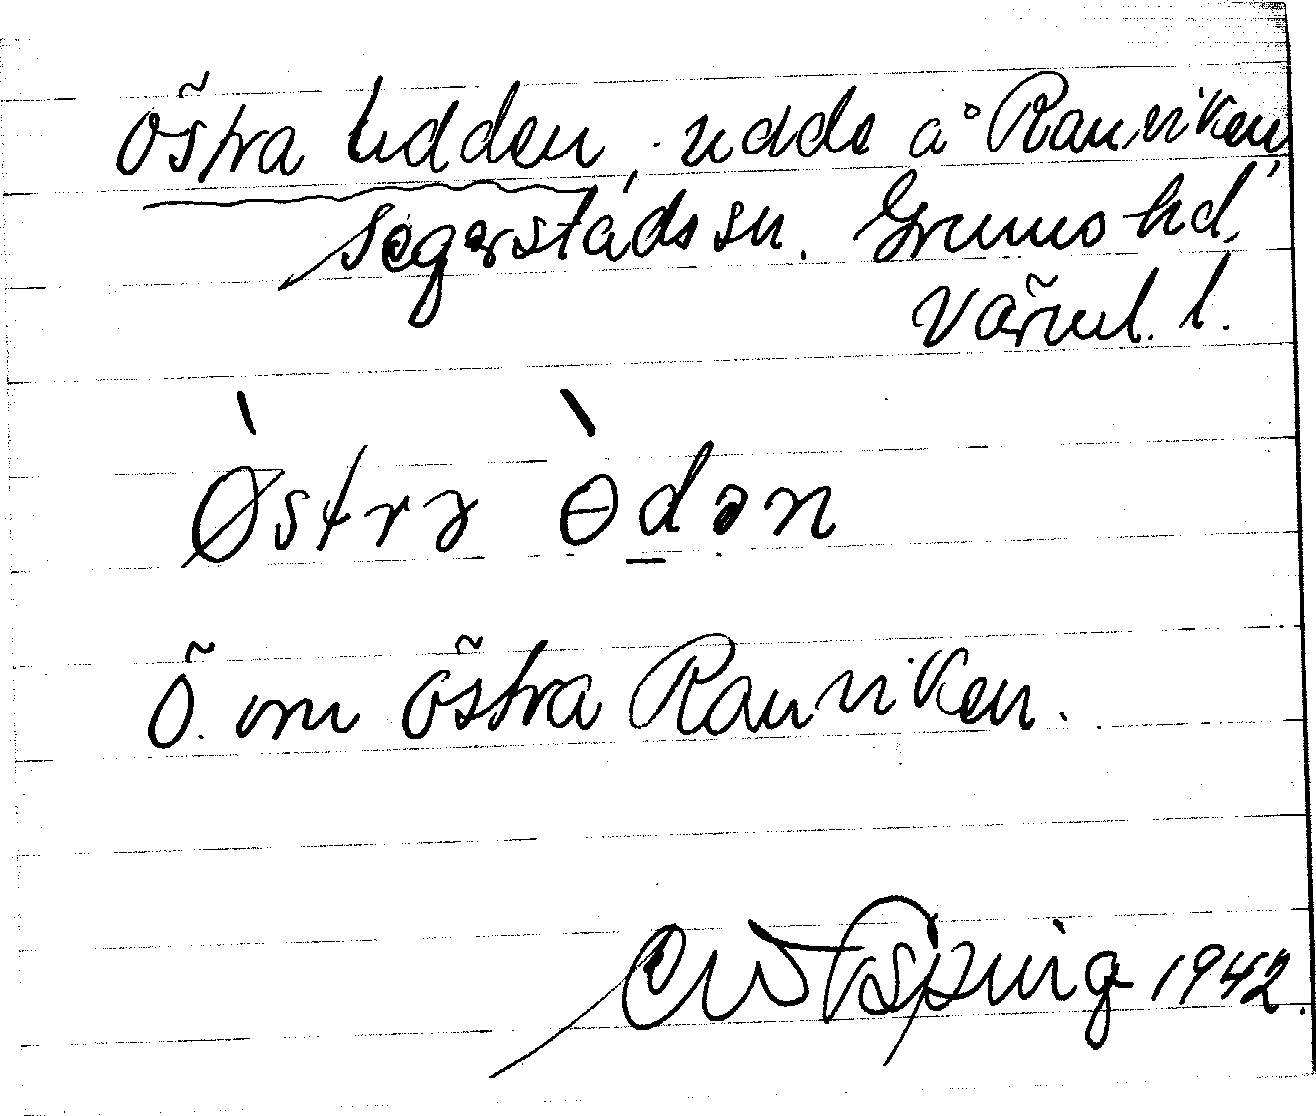 Östra Udden, udde å Ranviken,
Segerstads sn. Grums hd,
Värml. l.
Ø̀strɐ ɵ̀dən
Ö. om Östra Ranviken.
1942.